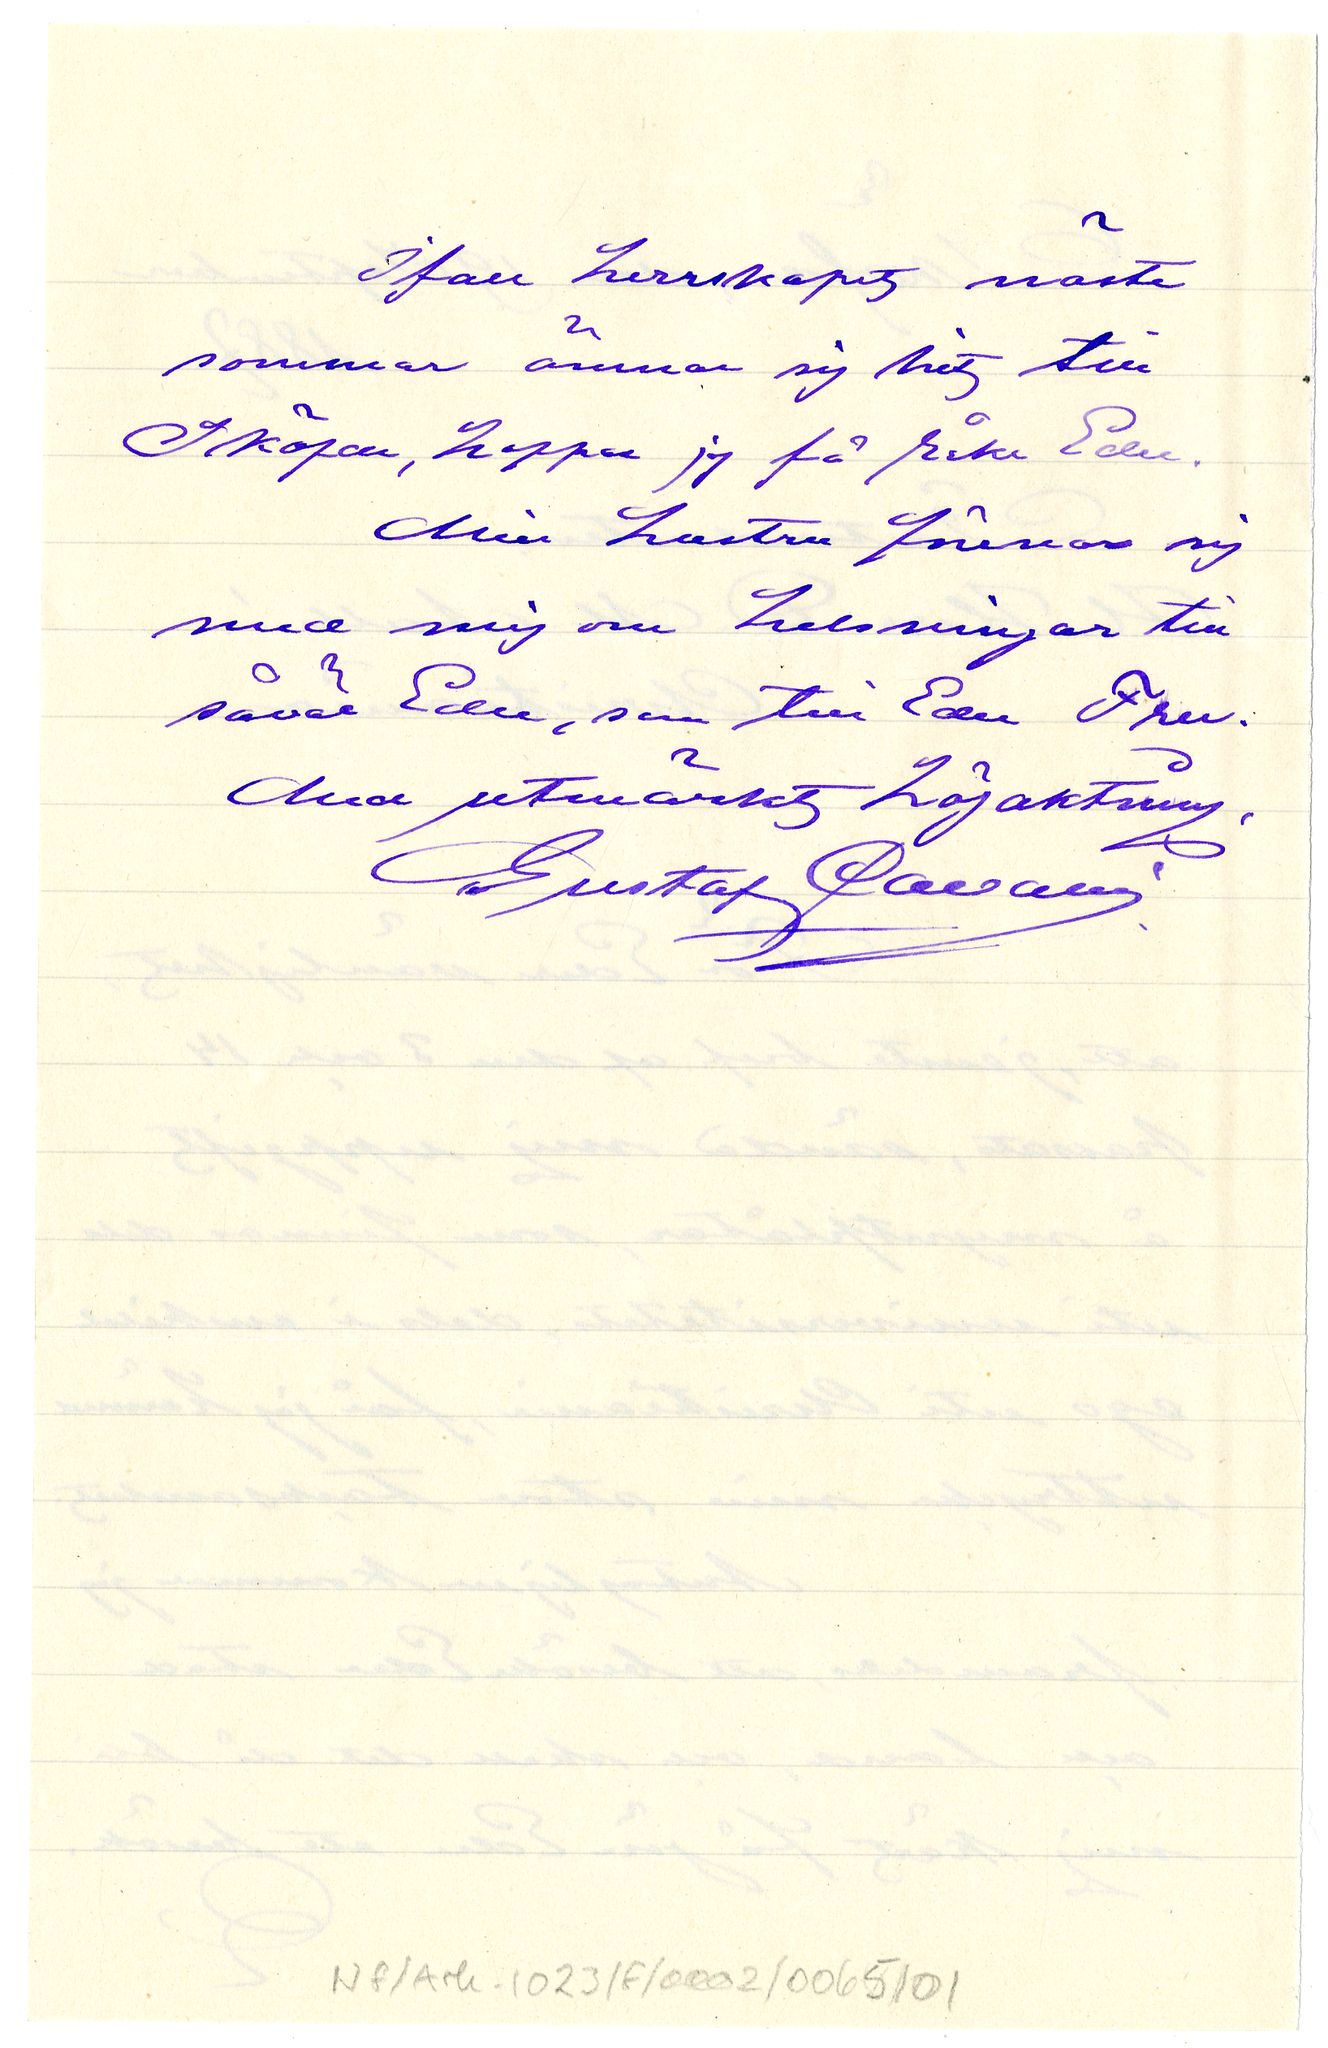 Ifall herrskapet nästa
sommar ämnar sig hit till
Sköfde, hoppas jg få råka Eder.
Min hustru förenar sig
med mig om helsningar till
såväl Eder, som till Eder Fru.
Med utmärkt högaktning,
Gustaf
NF/Ark-1023/F/0002/0065/01